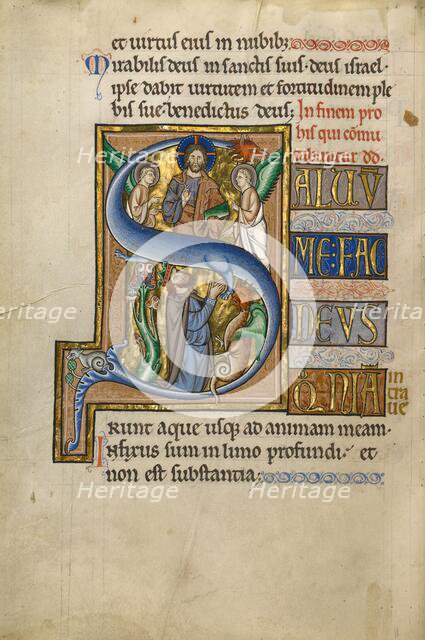 et uirtus eius in nubibȝ
Mirabilis deus in sanctis suis· deus israel·
ipse dabit uirtutem et fortitudinem ple
bis sue· benedictus deus;
In finem pro
his qui cōmu
tabuntur dd.
SALVV̄
ME: FAC
DEVS
QNIĀ
in
tra
ue
runt aque usq; ad animam meam·
Infixus sum in limo profundi· et
non est substantia;
Heritage
Images